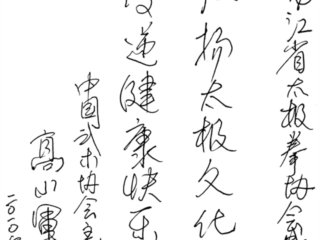 江省太极拳协会
扬太极文化
递健康快乐
中国武术协会主
高小军